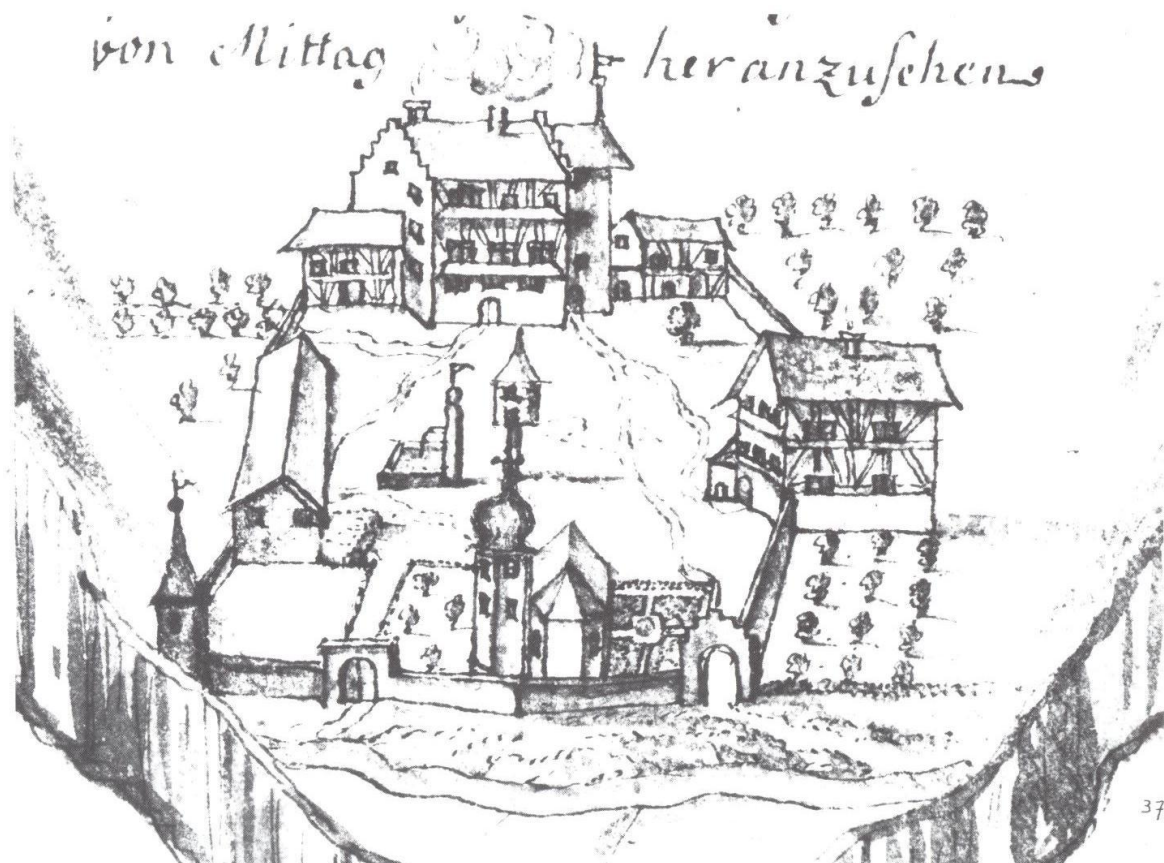 von Mittag heranzusehen
37